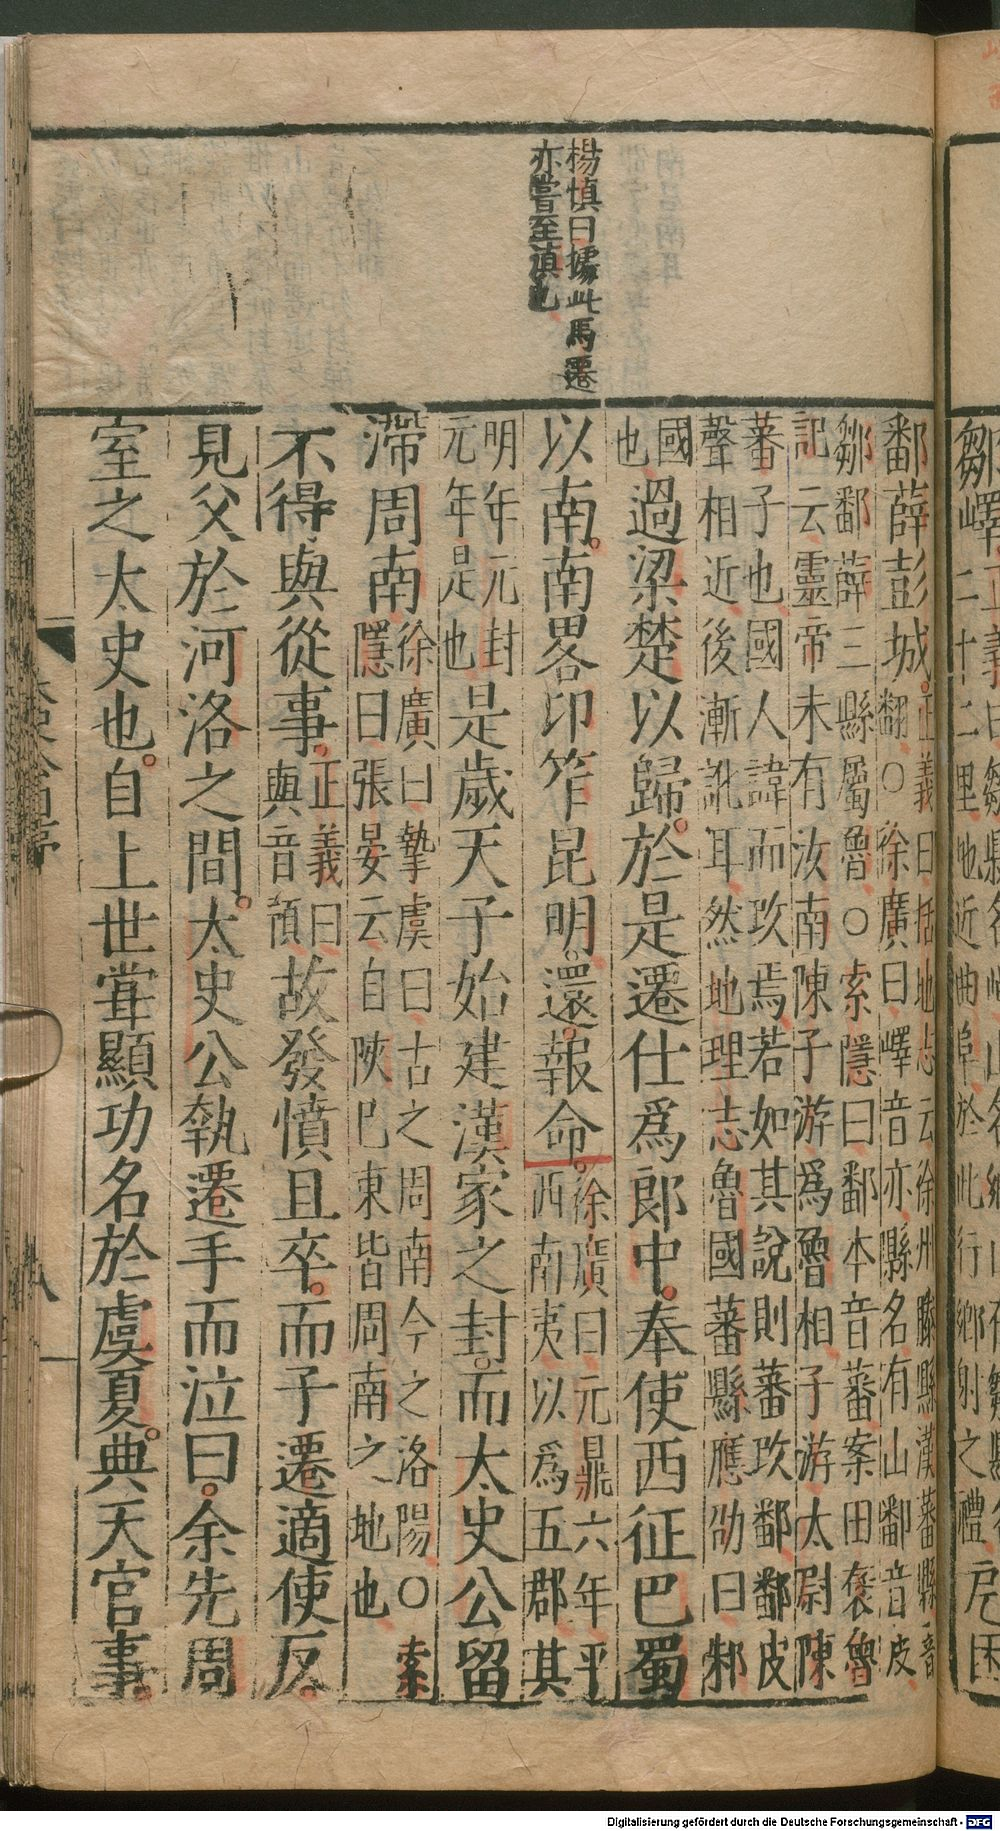 楊慎曰據此馬遷
亦嘗至滇也
鄱薛彭城正義曰括地志云徐州滕縣漢蕃縣音
翻○徐廣曰嶧音亦縣名有山鄱音皮
鄒鄱薛三縣屬魯○索隱曰鄱本音蕃案田褒魯
記云靈帝末有汝南陳子游爲魯相子游太尉陳
蕃子也國人諱而攺焉若如其說則蕃攺鄱鄱皮
聲相近後漸訛耳然地理志魯國蕃縣應劭曰邾
國也過梁楚以歸於是遷仕爲郎中奉使西征巴蜀
以南南畧卭笮昆明還報命徐廣曰元鼎六年平
西南夷以爲五郡其
明年元封
元年是也是歲天子始建漢家之封而太史公留
滯周南徐廣曰摯虞曰古之周南今之洛陽○索
隱曰張晏云自陝已東皆周南之地也
不得與從事正義曰
與音預故發憤且卒而子遷適使反
見父於河洛之間太史公執遷手而泣曰余先周
室之太史也自上世甞顯功名於虞夏典天官事
八
鄒嶧正義曰
二十二里地近曲阜於此行鄉射之禮戹困
Digitalisierung gefördert durch die Deutsche Forschungsgemeinschaft - DFG